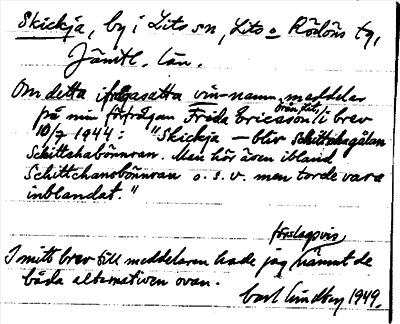 Skickja, by i Lits sn, Lits o Rödöns tg,
Jämtl. län.
Om detta ifrågasatta vin-namn meddelar
på min förfrågan Frida Ericsson från Lit, i brev
10/7 1944: "Skickja — bliv
Men hör även ibland
o. s. v. men torde vara
inblandat."
I mitt brev till meddelaren hade jag förslagsvis nämnt de
båda alternativen ovan.
Carl Lindberg 1949.